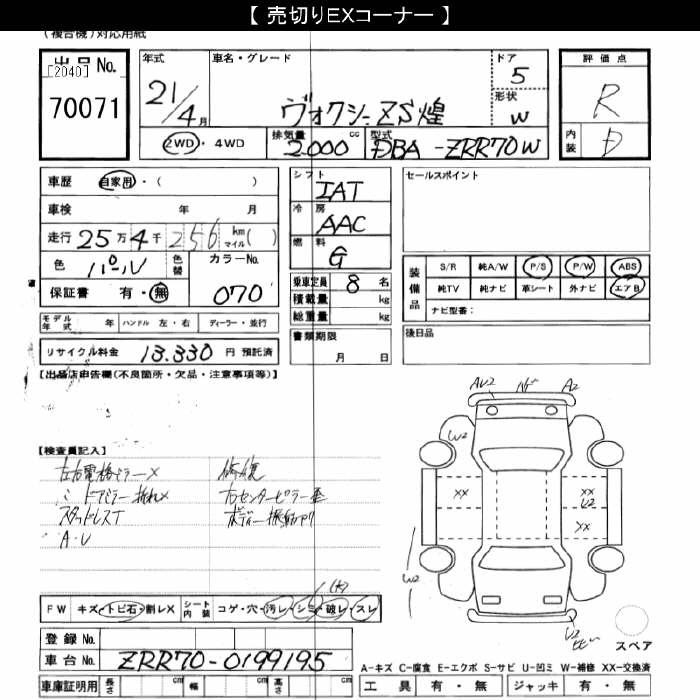 【 売切りEXコーナー 】
(複合機)対応用紙
出品No. [2040] 70071
年式 21/4月
車名・グレード ヴォクシーZS煌
ドア 5
形状 W
2WD・4WD
排気量 2.000 cc
型式 DBA-ZRR70W
評価点 R
内装 D
車歴 自家用・( )
車検 年 月
走行 25万4千256 km マイル( )
色 パール
色替
カラーNo. 070
保証書 有・無
シフト IAT
冷房 AAC
燃料 G
乗車定員 8名
積載量 kg
総重量 kg
書類期限 月 日
セールスポイント
装備品 S/R 純A/W P/S P/W ABS
純TV 純ナビ 革シート 外ナビ エアB
ナビ型番:
後日品
モデル年式 年 ハンドル 左・右 ディーラー・並行
リサイクル料金 13.330 円 預託済
【出品店申告欄(不良箇所・欠品・注意事項等)】
【検査員記入】
左右電格ミラー×
〃 ドアミラー折れ×
スタッドレスT
A・U
修復
右センターピラー歪
A2
W2
XX
XX
U2
XX
W2
U2
スペア
FW キズ・トビ石・割レX シート内装 コゲ・穴・汚レ・シミ・破レ・スレ
(大)
登録No.
車台No. ZRR70-0199195
車庫証明用 長さ cm 幅 cm 高さ cm
A-キズ C-腐食 E-エクボ S-サビ U-凹ミ W-補修 XX-交換済
工具 有・無 ジャッキ 有・無